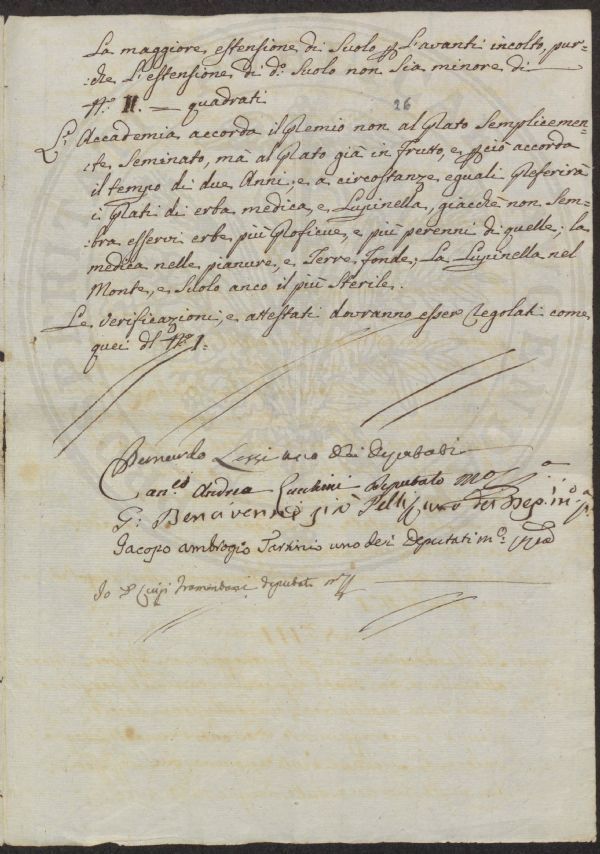 La maggiore estensione di Suolo p L'avanti incolto, pur-
:che L'estensione di d.º Suolo non sia minore di
N.º II. — quadrati
26
L' Accademia accorda il Premio non al Prato Semplicemen-
:te Seminato, mà al Prato già in Frutto, e pciò accorda
il tempo di due Anni, e a circostanze eguali preferirà
i Prati di erba medica, e Lupinella, giacche non Sem-
:bra esservi erbe più proficue, e più perenni di quelle; la
medica nelle pianure, e Terre fonde; La Lupinella nel
Monte, e Suolo anco il più Sterile.
Le verificazioni, e attestati dovranno essere regolati come
quei dl N.º 1:
Bernardo Lessi uno dei deputati
Can.co Andrea Zucchini deputato
G: Benavenuti uno dei Dep.
Jacopo Ambrogio Tartini uno dei Deputati m.º pp.ª
Io Luigi Tramontani deputato